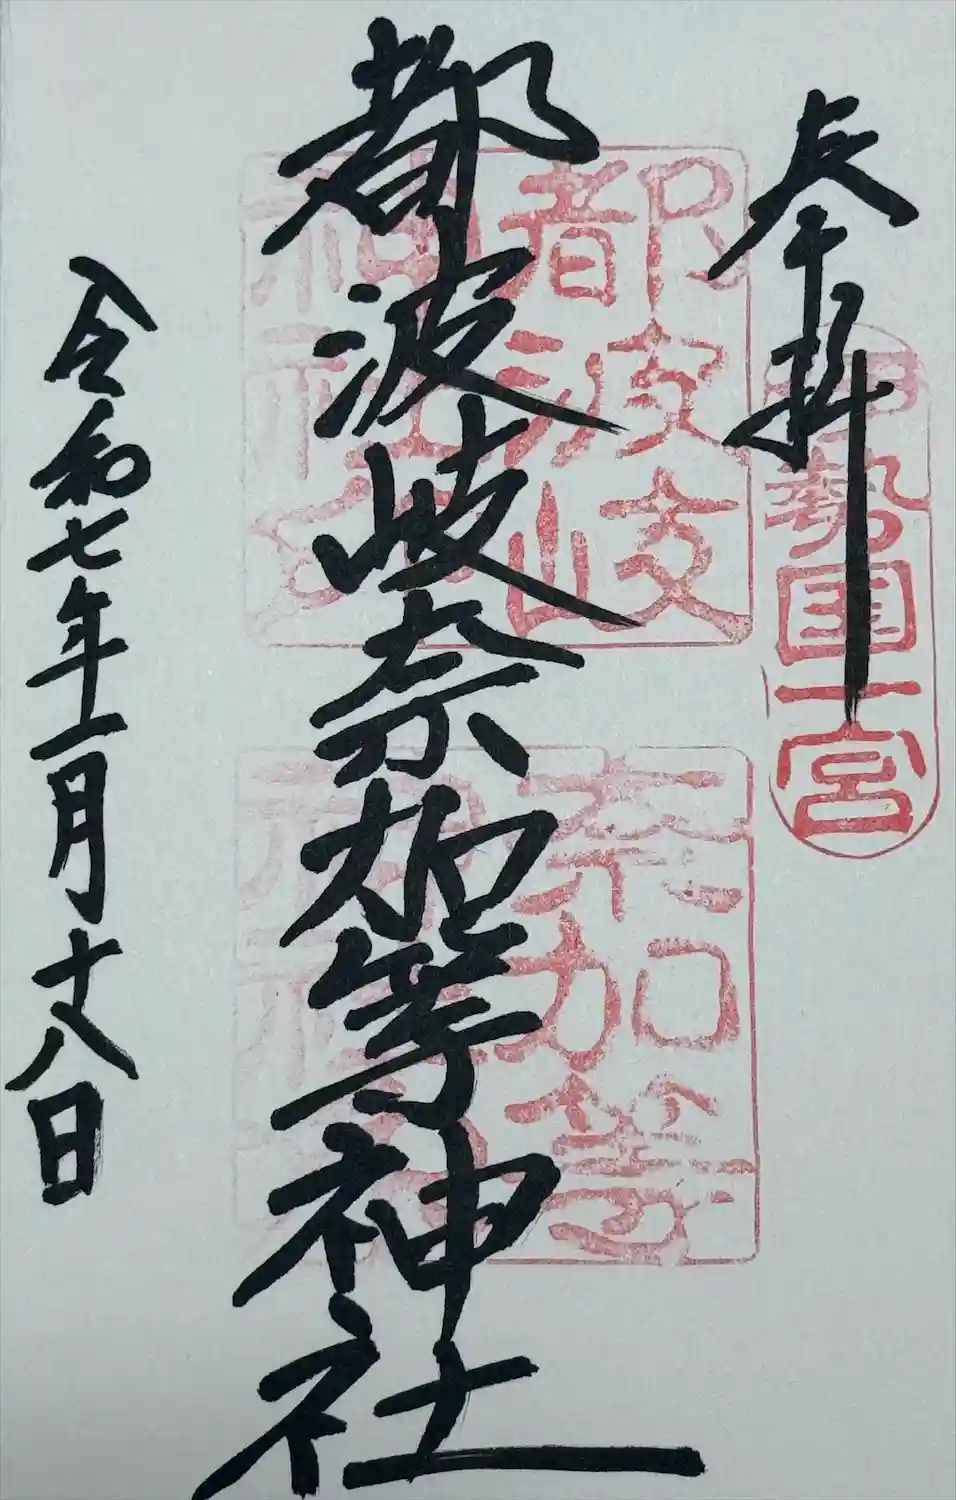 奉拝
伊勢国一宮
都波岐奈加等神社
都波岐
神社
奈加等
神社
令和七年一月十八日